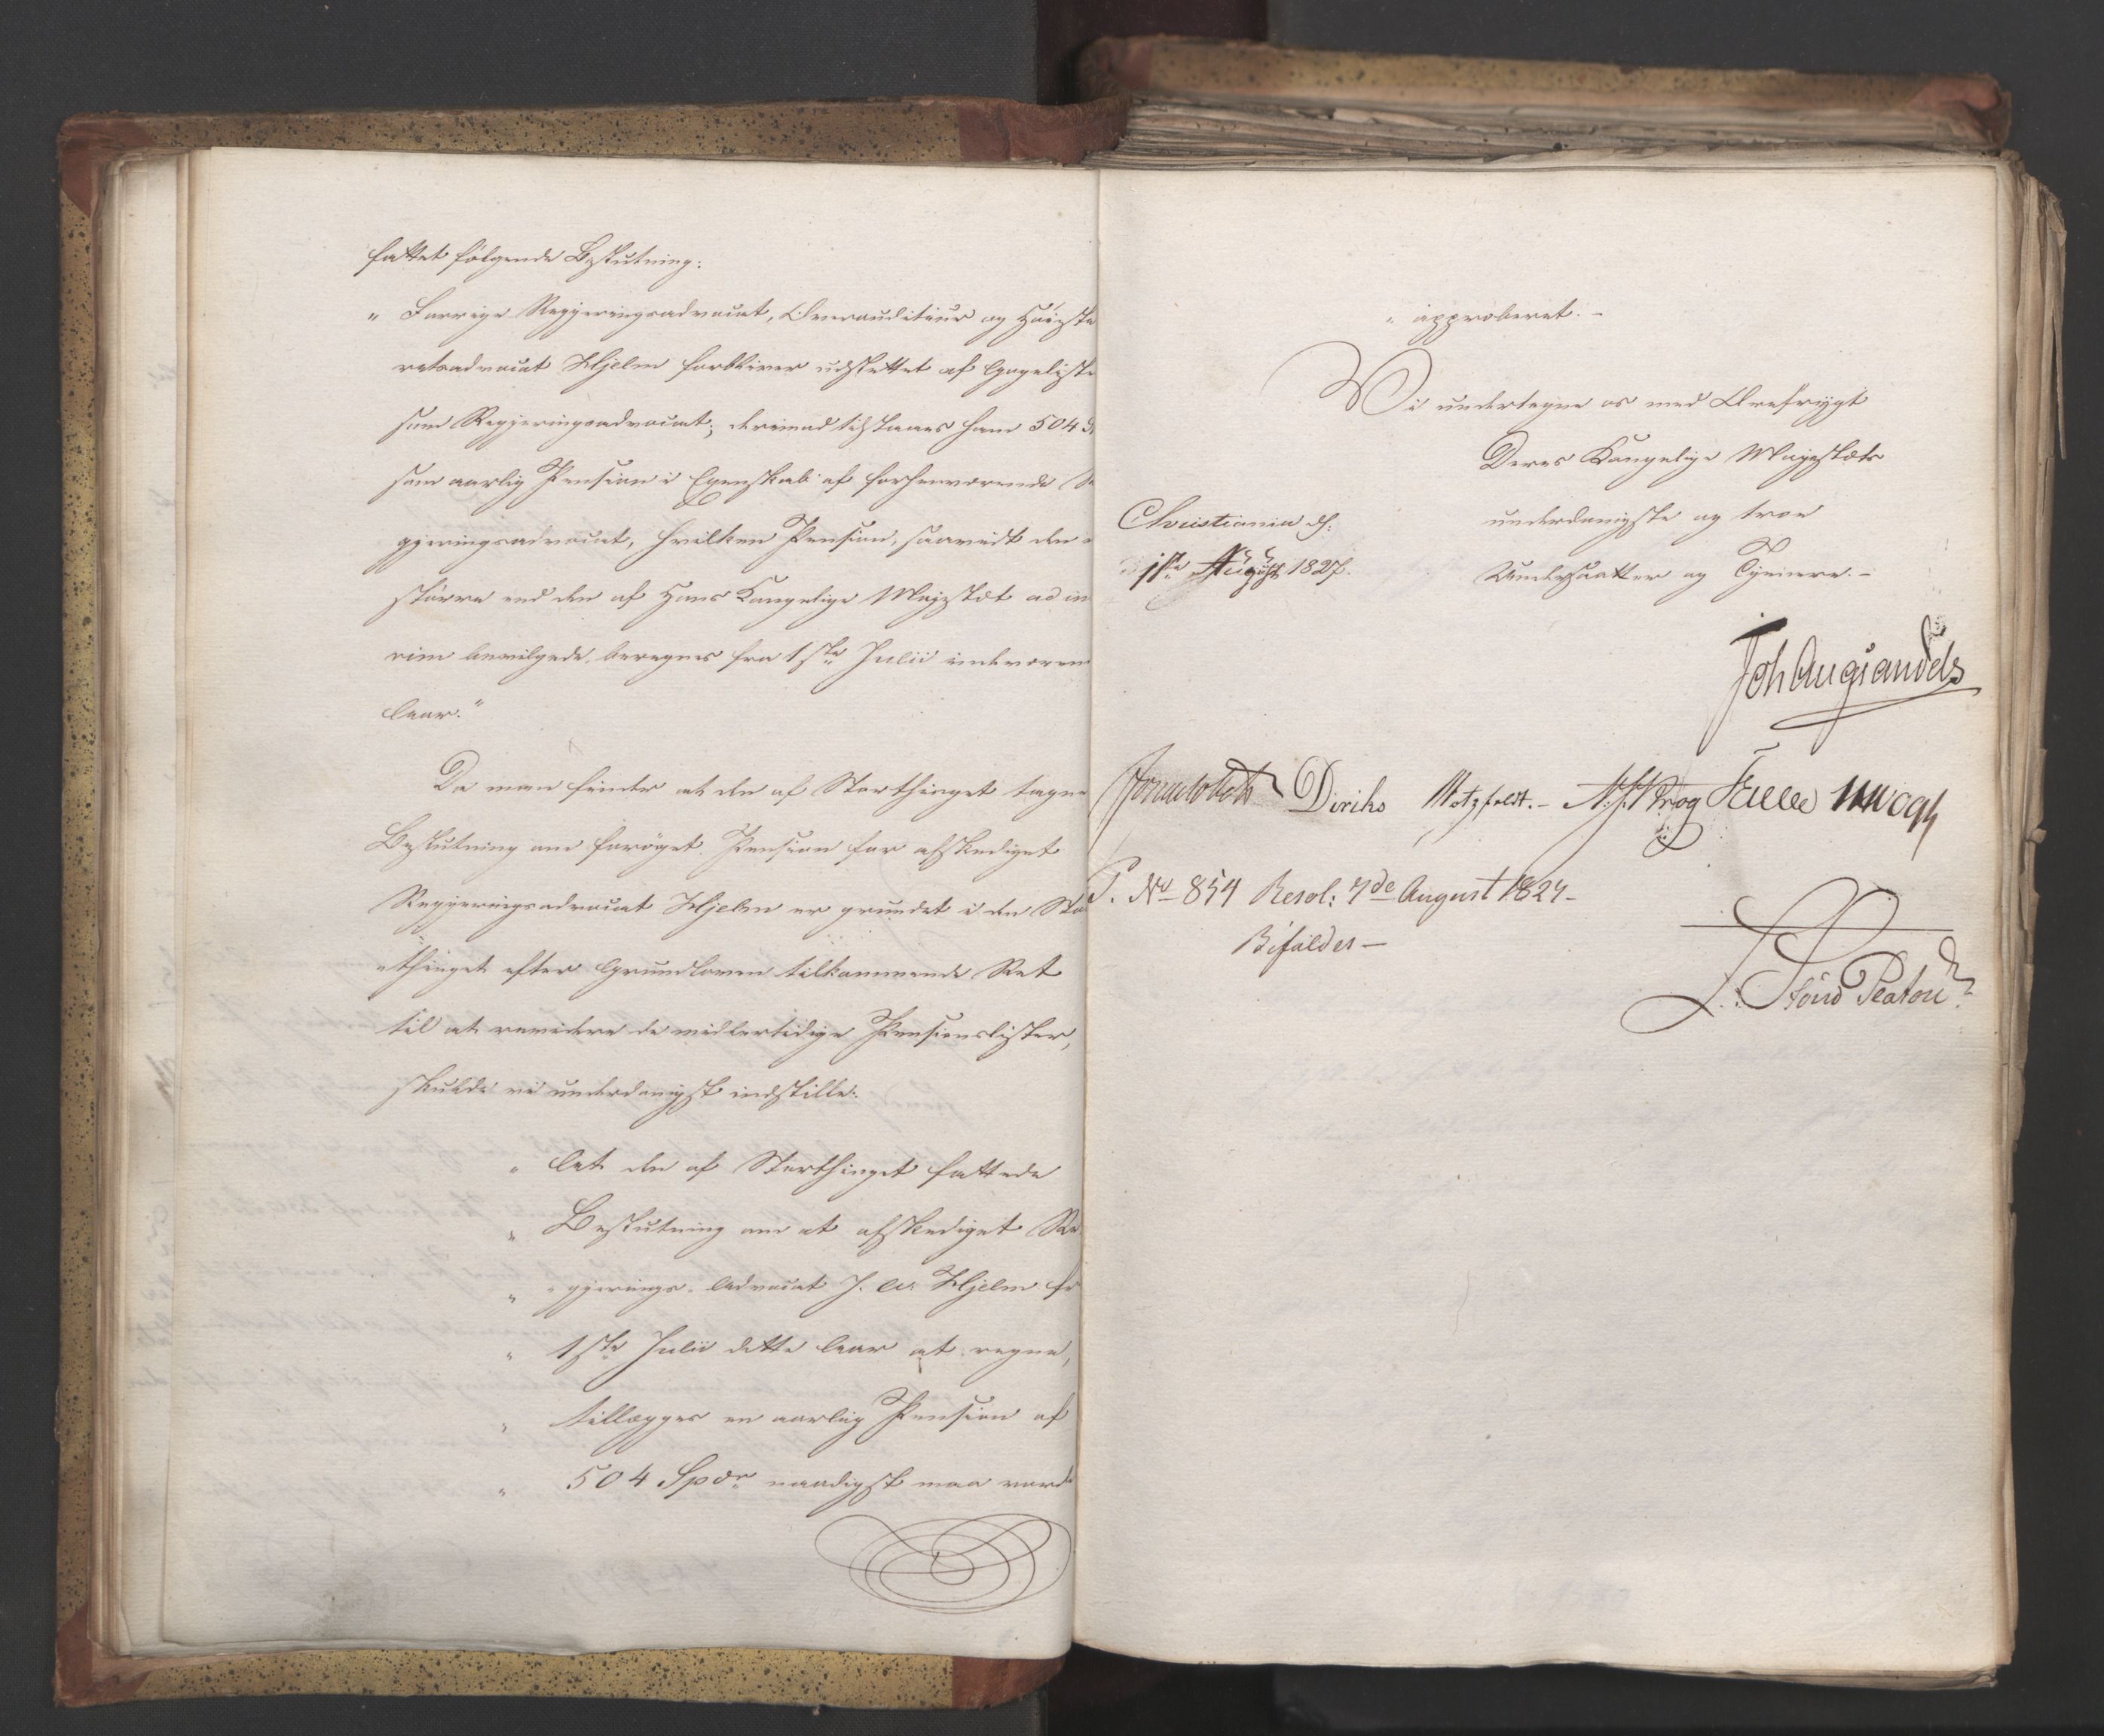 fattet følgende Beslutning:
„ Forrige Regjeringsadvocat, Overauditeur og Høieste
retsadvocat Hjelm forbliver udslettet af Gageliste
som Regjeringsadvocat; derimod tilstaaes ham 504
som aarlig Pension i Egenskab af forhenværende
gjeringsadvocat, hvilken Pension, saavidt den
større end den af Hans Kongelige Majestæt ad in
rim bevilgede, beregnes fra 1ste Julii indeværen
Aar.”
Da man finder at den af Storthinget tagne
Beslutning om forøget Pension for afskediget
Regjeringsadvocat Hjelm er grundet i den Sto
„thinget efter Grundloven tilkommende Ret
til at revidere de midlertidige Pensionslister,
skulde vi underdanigst indstille:
„ At den af Storthinget fattede
„ Beslutning om at afskediget Re
„ „gjerings-Advocat J. A. Hjelm fr
„ 1ste Julii dette Aar at regne,
„ tillægges en aarlig Pension af
„ 504 Spdr naadigst maa vorde
„ approberet.-
Vi undertegne os med Ærefrygt
Deres Kongelige Majestæts
underdanigste og troe
Undersaatter og Tjenere.-
Christiania d:
1ste August 1827.
Joh Aug Sandels
Sommerfeldt Diriks Motzfeldt.- Krog Fasting
P. No 854 Resol: 7de August 1827-
Bifaldes-